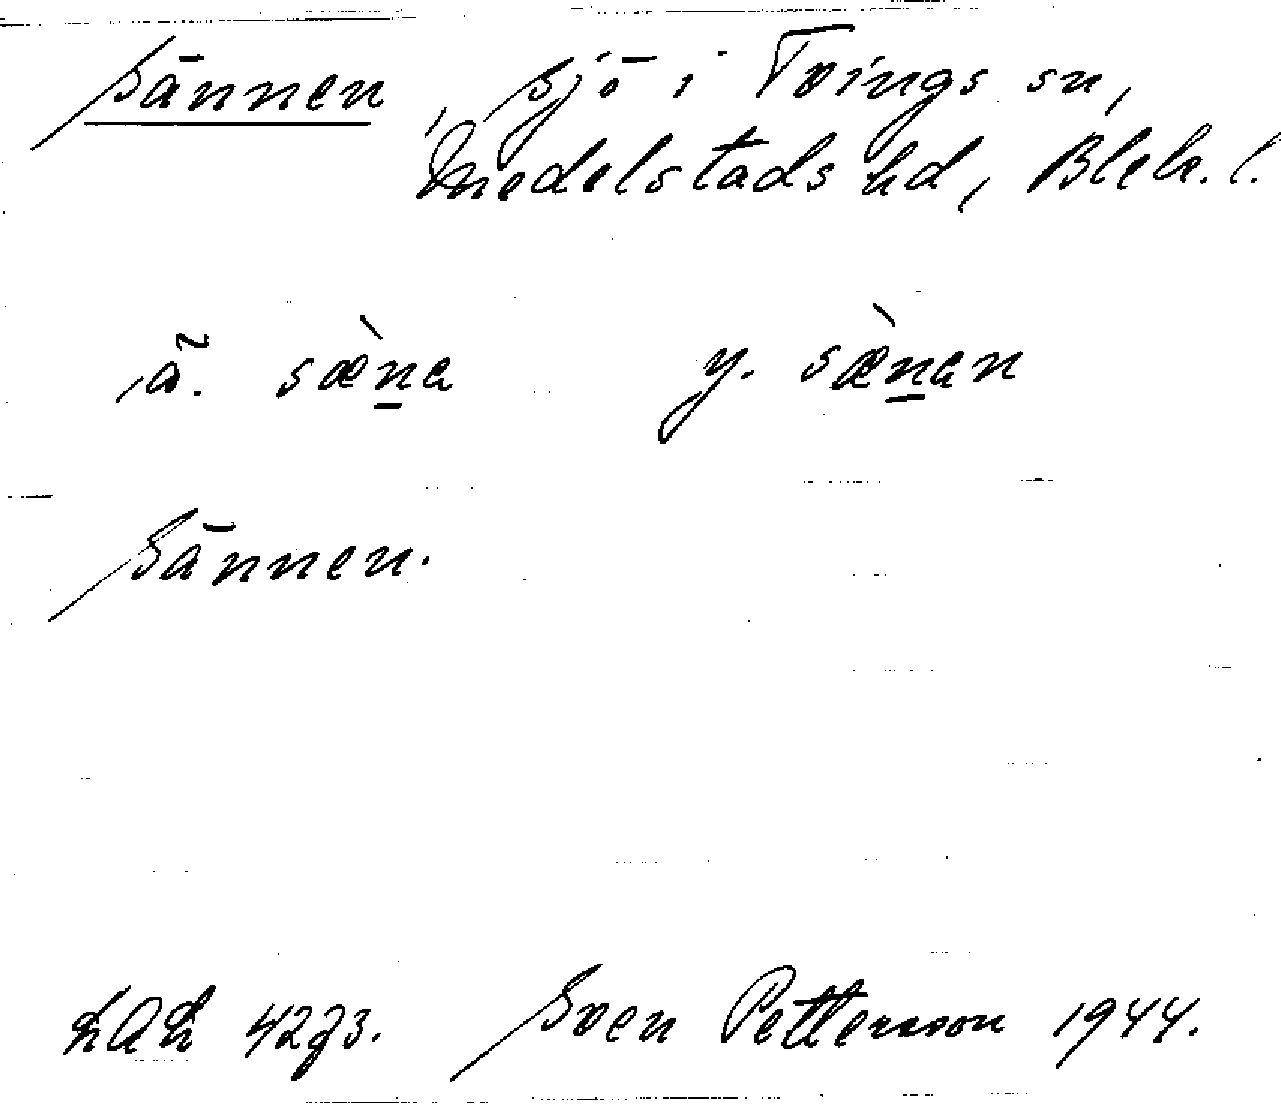 Sännen, sjö i Tvings sn,
Medelstads hd, Blek. l.
ä. sæ̀n̲a y. sæ̀n̲an
Sännen.
LAL 4273. Sven Pettersson 1944.